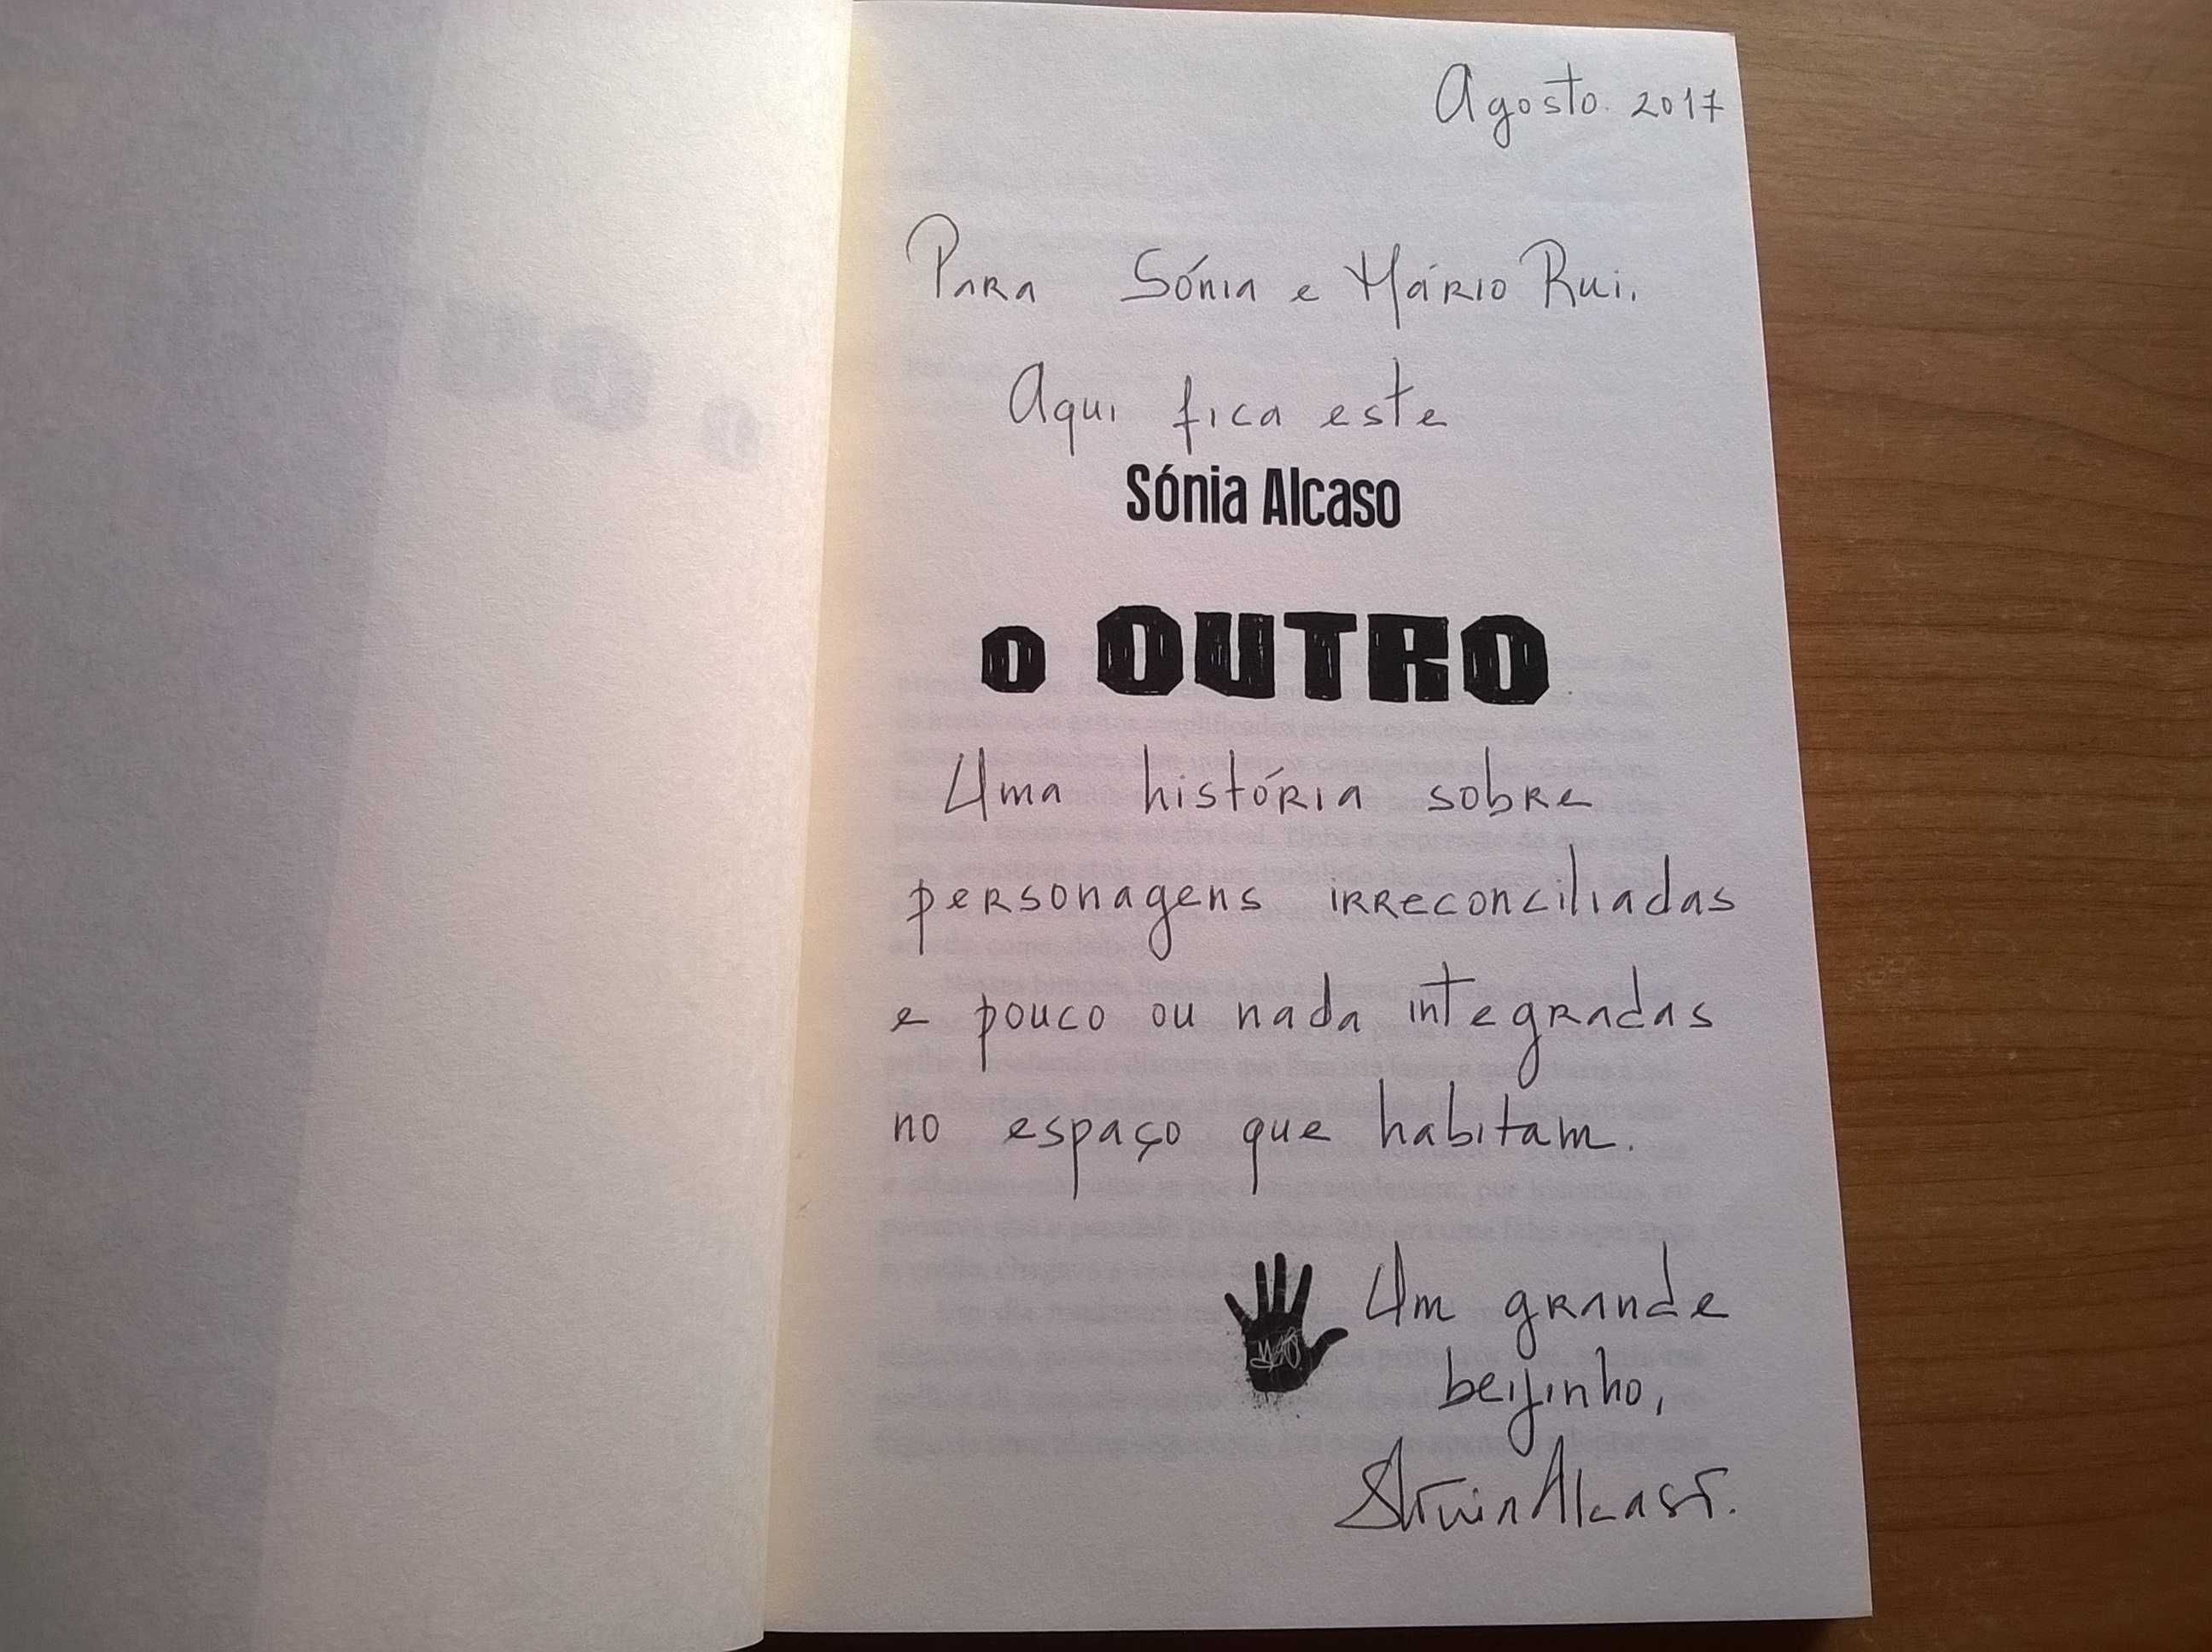 Agosto. 2017
Para Sónia e Mário Rui.
Aqui fica este
Sónia Alcaso
O OUTRO
Uma história sobre
personagens irreconciliadas
e pouco ou nada integradas
no espaço que habitam.
Um grande
beijinho,
Sónia Alcaso.